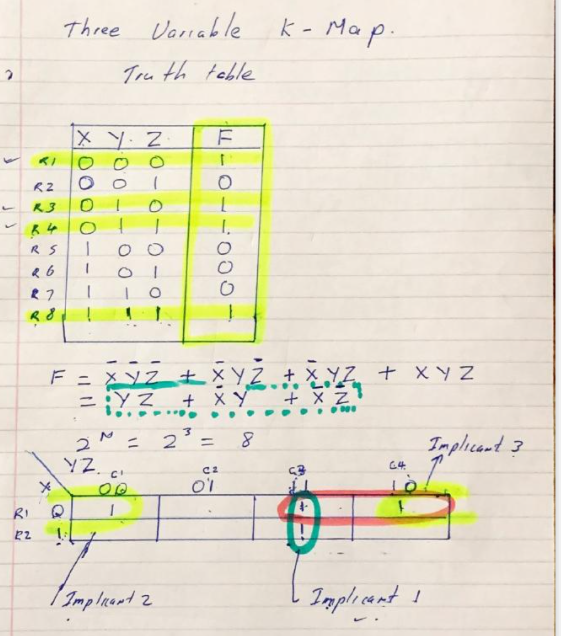 Three Variable K-Map.
Truth table
X Y Z F
R1 0 0 0 1
R2 0 0 1 0
R3 0 1 0 1
R4 0 1 1 1.
R5 1 0 0 0
R6 1 0 1 0
R7 1 1 0 0
R8 1 1 1 1
F = X̄ȲZ̄ + X̄YZ̄ + X̄YZ + XYZ
= YZ + X̄Y + X̄Z̄
2ᴺ = 2³ = 8
Implicant 3
YZ. C1 C2 C3 C4
X 00 01 11 10
R1 0 1 1 1
R2 1 1
Implicant 2 Implicant 1